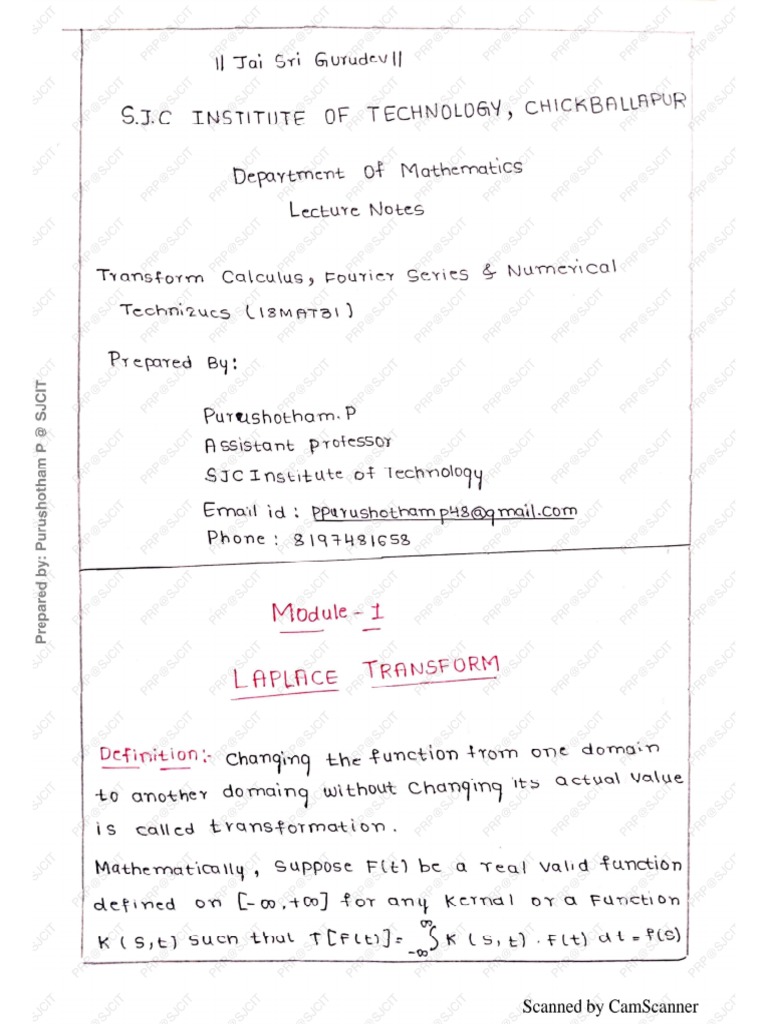 || Jai Sri Gurudev ||
S.J.C INSTITUTE OF TECHNOLOGY, CHICKBALLAPUR
Department Of Mathematics
Lecture Notes
Transform Calculus, Fourier Series & Numerical
Techniques (18MAT31)
Prepared By:
Purushotham.P
Assistant professor
SJC Institute of Technology
Email id : ppurushothamp48@gmail.com
Phone : 8197481658
Prepared by: Purushotham P @ SJCIT
Module - 1
LAPLACE TRANSFORM
Definition:- Changing the function from one domain
to another domaing without Changing its actual value
is called transformation.
Mathematically, Suppose F(t) be a real valid function
defined on [-∞,+∞] for any Kernal or a Function
K(S,t) such that T[F(t)] = ∫_{-∞}^{∞} K(S,t). F(t) dt = f(S)
PRP@SJCIT
Scanned by CamScanner